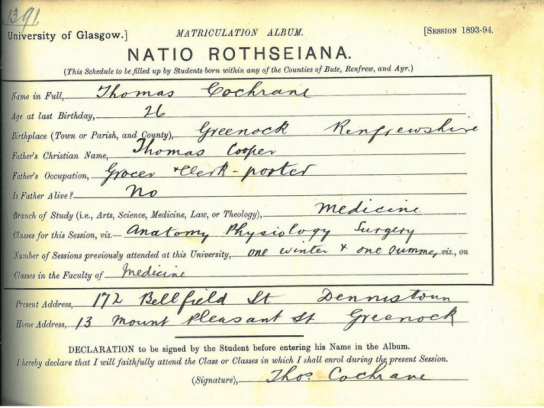 1391
University of Glasgow.] MATRICULATION ALBUM. [SESSION 1893-94.
NATIO ROTHSEIANA.
(This Schedule to be filled up by Students born within any of the Counties of Bute, Renfrew, and Ayr.)
Name in Full, Thomas Cochrane
Age at last Birthday, 26
Birthplace (Town or Parish, and County), Greenock Renfrewshire
Father's Christian Name, Thomas Cooper
Father's Occupation, Grocer & Clerk-porter
Is Father Alive? No
Branch of Study (i.e., Arts, Science, Medicine, Law, or Theology), Medicine
Classes for this Session, viz.— Anatomy Physiology Surgery
Number of Sessions previously attended at this University, one winter & one summer, viz., on
Classes in the Faculty of Medicine
Present Address, 172 Bellfield St Dennistoun
Home Address, 13 Mount Pleasant St Greenock
DECLARATION to be signed by the Student before entering his Name in the Album.
I hereby declare that I will faithfully attend the Class or Classes in which I shall enrol during the present Session.
(Signature), Thos Cochrane